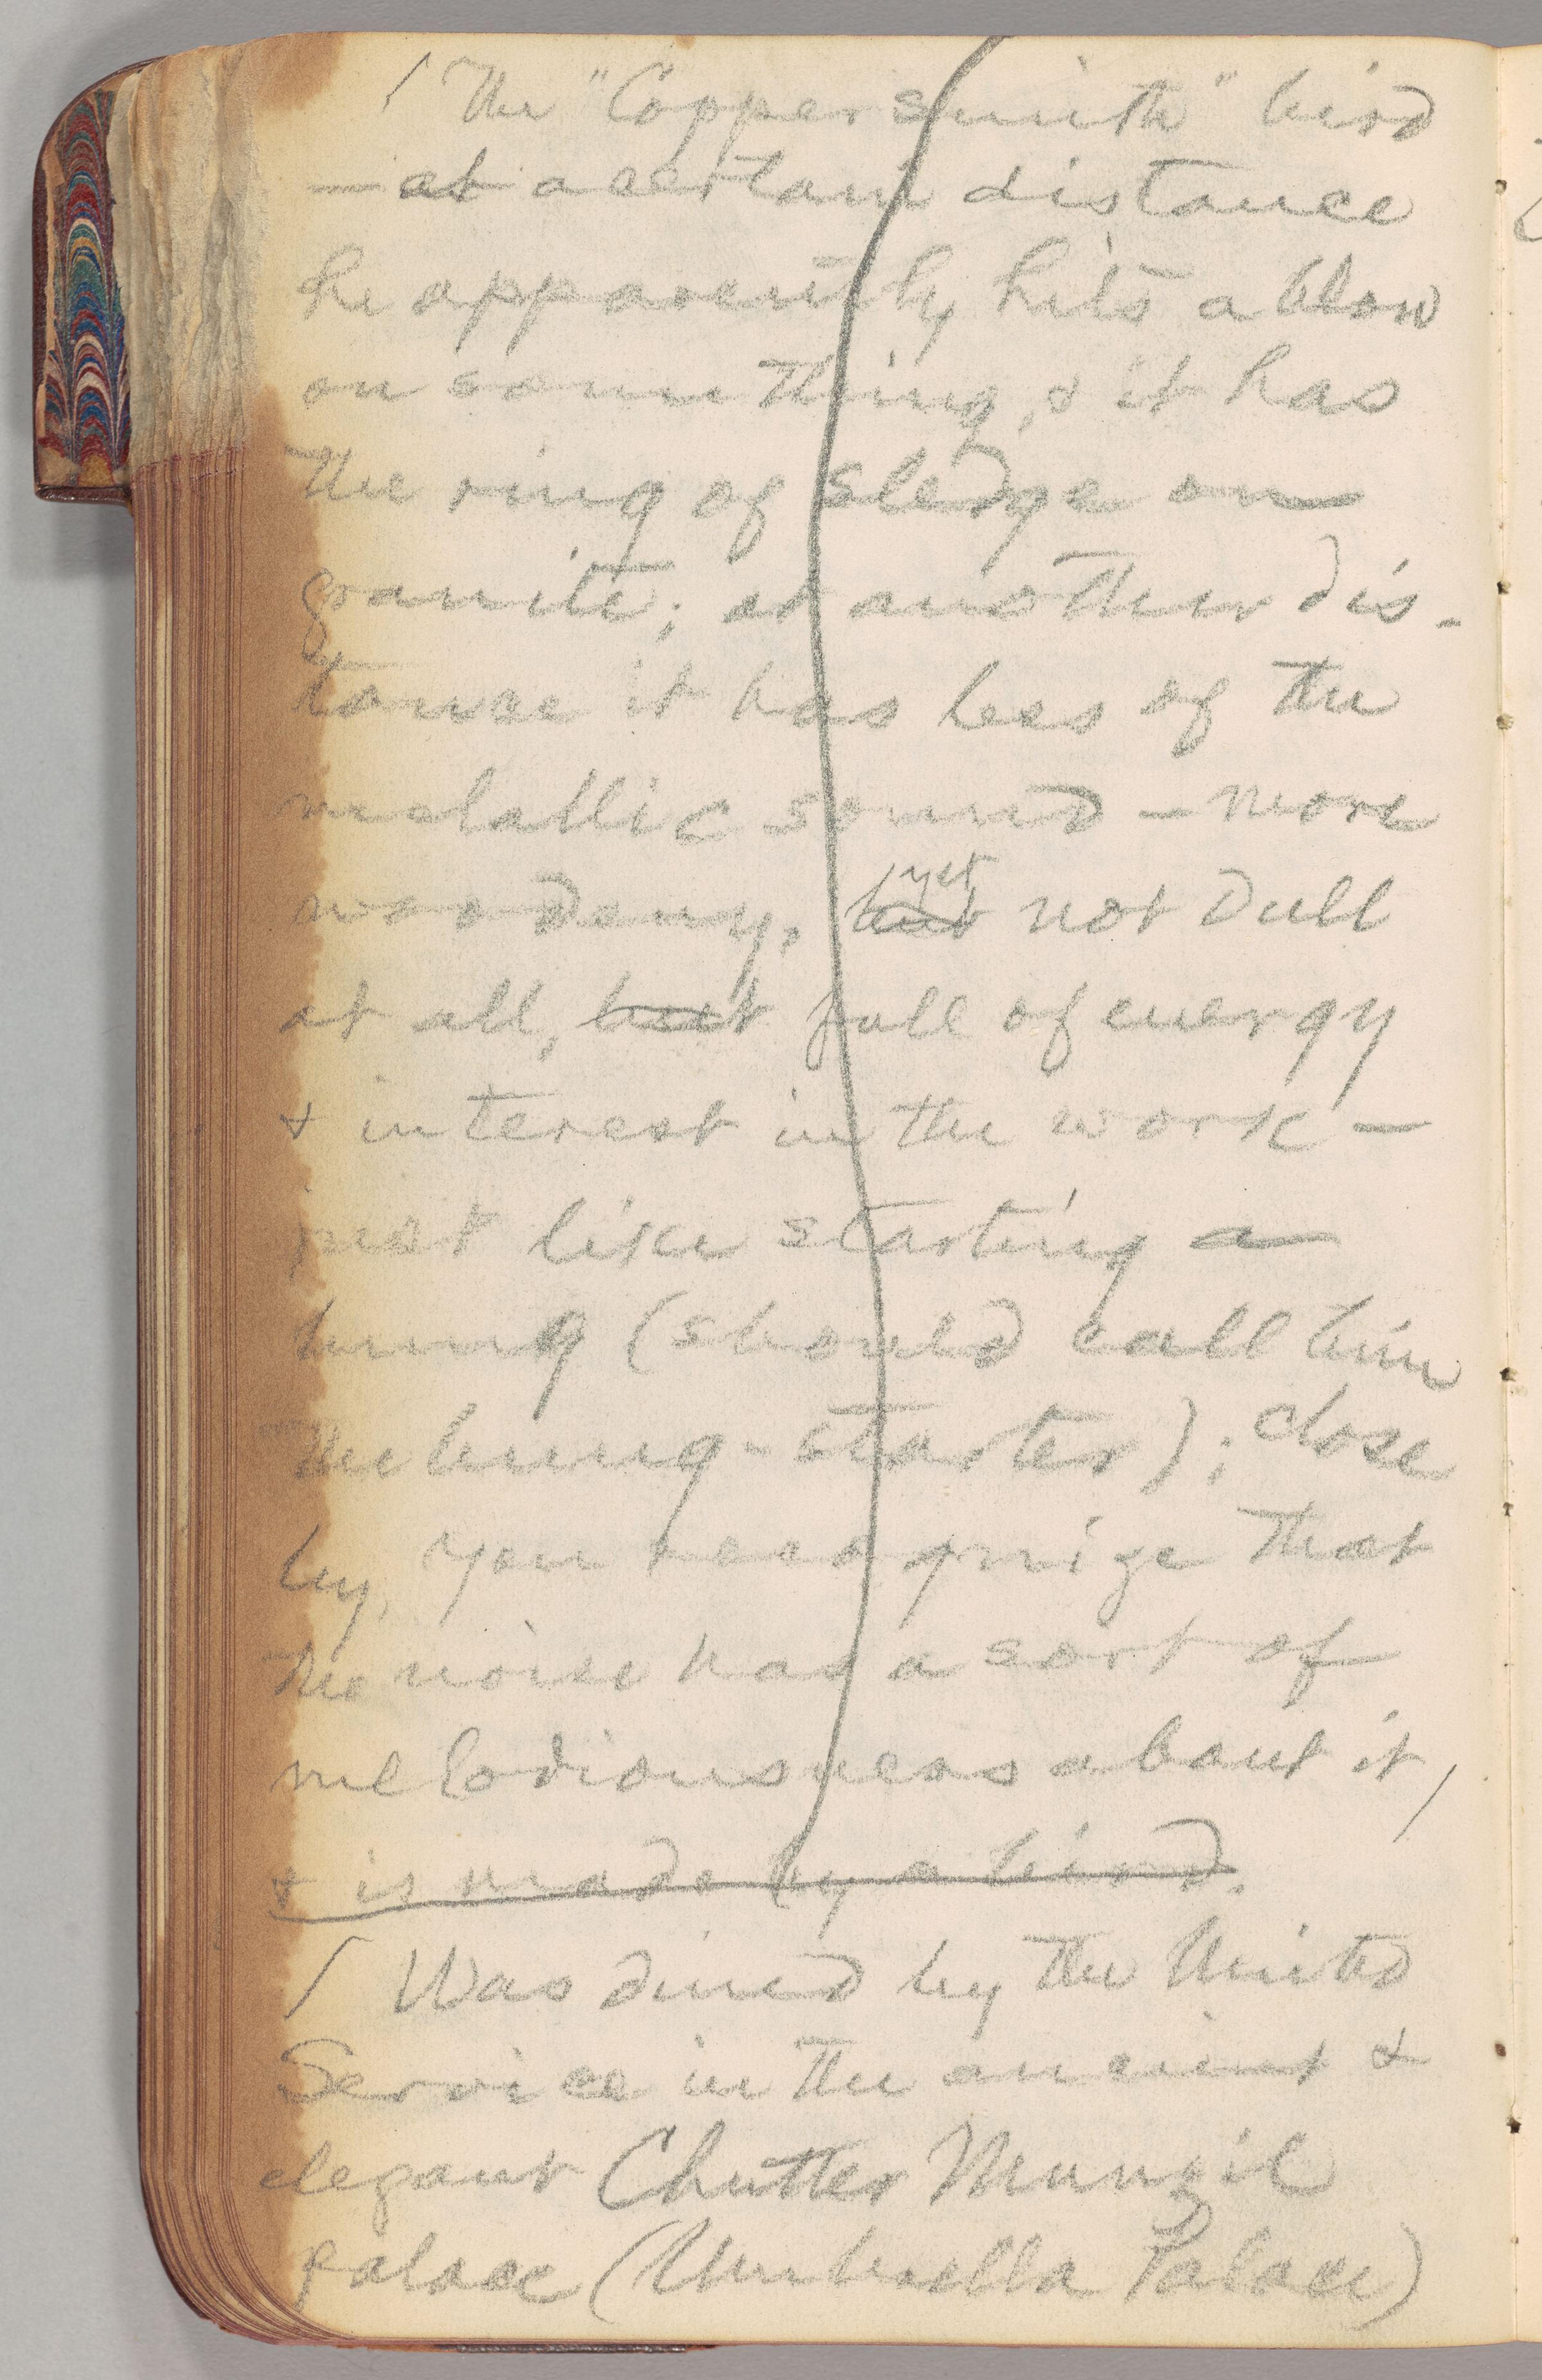 / The "Coppersmith" bird
— at a certain distance
he apparently hits a blow
on something, & it has
the ring of sledge on
granite; at another dis-
tance it has less of the
metallic sound — more
woodeny, but yet not dull
at all, but full of energy
& interest in the work —
just like starting a
bung (should call him
the bung-starter); close
by, you recognize that
the noise has a sort of
melodiousness about it,
& is made by a bird.
/ Was dined by the United
Service in the ancient &
elegant Chutter Munzil
palace (Umbrella Palace)